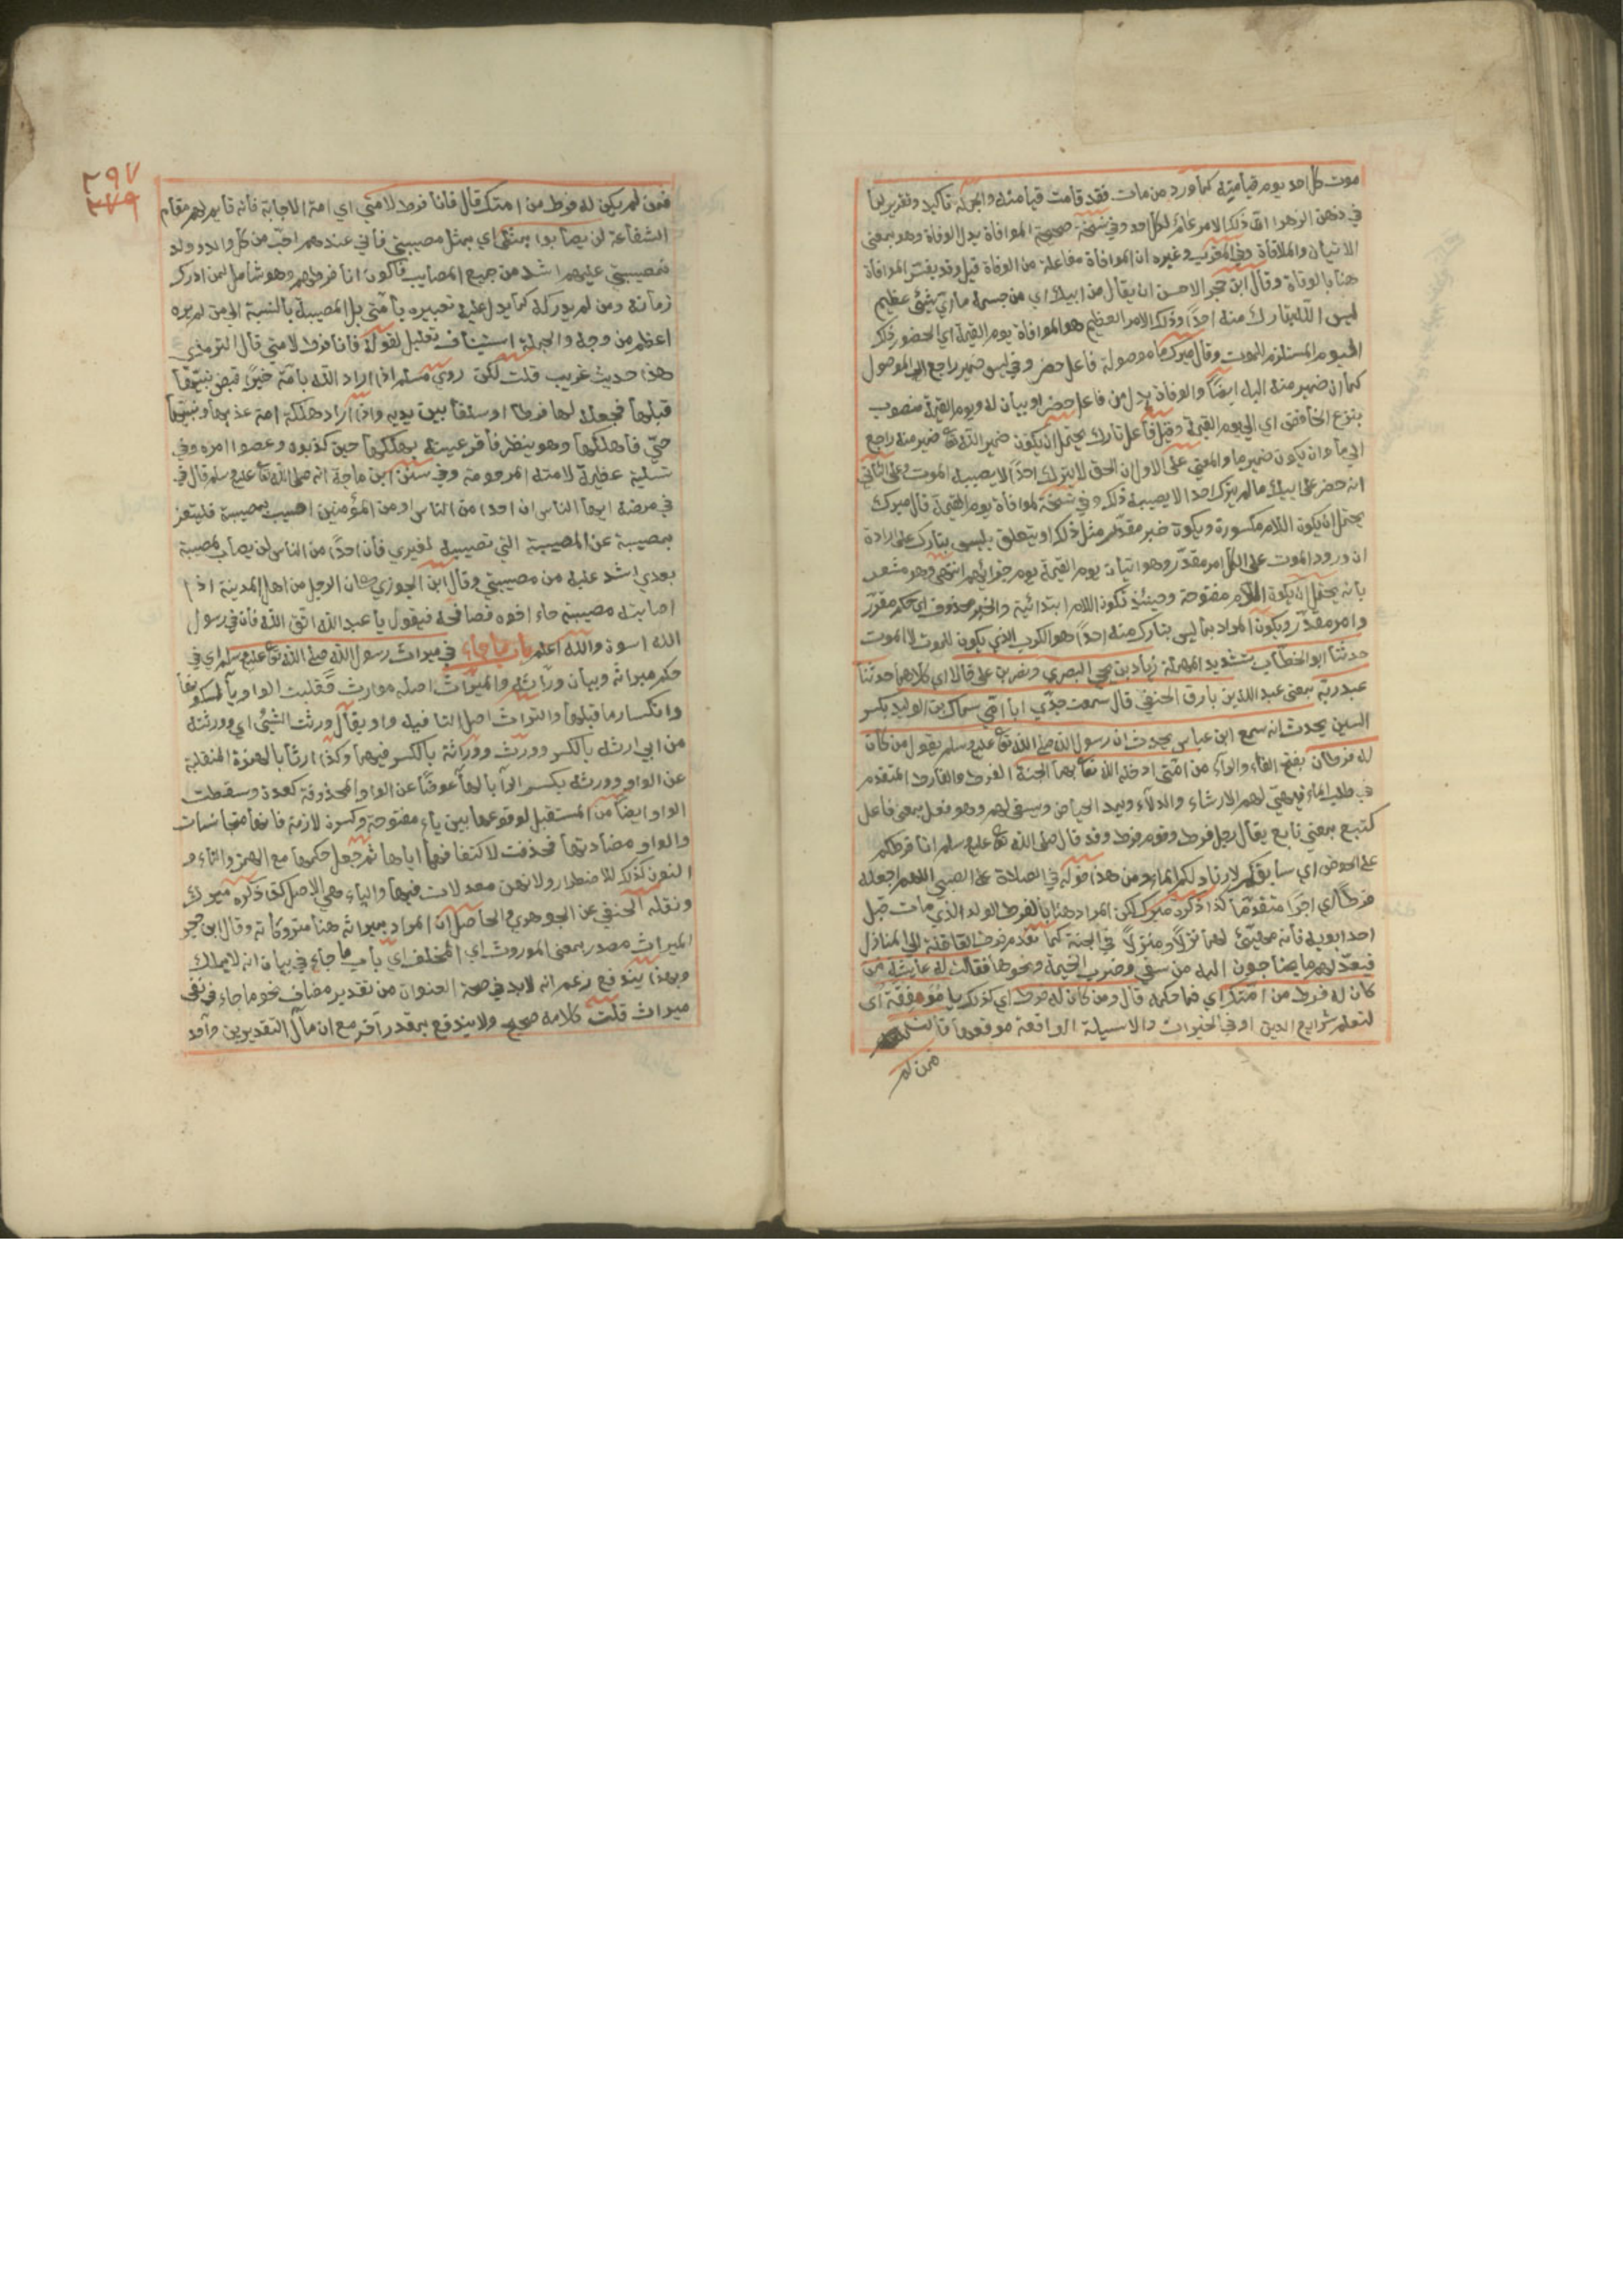 موت كل احد يوم قيامته كما ورد من مات فقد قامت قيامته والجملة تاكيد وتقرير لما
في ذهن الزهرا ان ذلك الامر عام لكل احد وفي نسخة صحيحة الموافاة بدل الوفاة وهو بمعنى
الاتيان والملاقاة وفي المغرب وغيره ان الموافاة مفاعلة من الوفاة قيل وقد يفسر الموافاة
هنا بالوفاة وقال ابن حجر الاحسن ان يقال من ابيك اي من جسمه ما اي شيئ عظيم
ليس الله بتارك منه احدا وذلك الامر العظيم هو الموافاة يوم القيمة اي الحضور ذلك
اليوم المستلزم للموت وقال ميرك ما موصولة فاعل حضر وفي ليس ضمير راجع الى الموصول
كما ان ضمير منه اليه ايضا والوفاة بدل من فاعل حضر او بيان له ويوم القيمة منصوب
بنزع الخافض اي الى يوم القيمة وقيل فاعل تارك يحتمل ان يكون ضمير الله تعا ضمير منه راجع
الى ما وان يكون ضمير ما والمعنى على الاول ان الحق لا يترك احدا الا يصيبه الموت وعلى الثاني
انه حضر على ابيك ما لم يترك احدا الا يصيبه ذلك وفي نسخة لموافاة يوم القيمة قال ميرك
يحتمل ان يكون اللام مكسورة ويكون خبر مقدر مثل ذلك او يتعلق بليس بتارك على ارادة
ان ورود الموت على الكل امر مقدر وهو اتيان يوم القيمة يوم جزائهم انتهى وهو مشعر
بانه يحتمل ان يكون اللام مفتوحة وحينئذ تكون اللام ابتدائية والخبر محذوف اي حكم مقرر
وامر مقدر ويكون المراد بما ليس بتارك منه احدا هو الكرب الذي يكون للموت لا الموت
حدثنا ابو الخطاب بتشديد المهملة زياد بن يحيى البصري ونصر بن علي قالا اي كلاهما حدثنا
عبد ربه بمعنى عبد الله بن بارق الحنفي قال سمعت جدي ابا امي سماك بن الوليد بكسر
السين يحدث انه سمع ابن عباس يحدث ان رسول الله صلى الله تعا عليه وسلم يقول من كان
له فرطان بفتح الفاء والراء من امتي ادخله الله تعا بهما الجنة الفرط والفارط المتقدم
في طلب الماء فيهيئ لهم الارشاء والدلاء ويمد الحياض ويسقى لهم وهو فعل بمعنى فاعل
كتبع بمعنى تابع يقال رجل فرط وقوم فرط وقد قال صلى الله تعا عليه وسلم انا فرطكم
على الحوض اي سابقكم لارتاد لكم الماء ومن هذا قوله في الصلاة على الصبي اللهم اجعله
فرطا اي اجرا متقدما كذا ذكره ميرك لكن المراد هنا بالفرط الولد الذي مات قبل
احد ابويه فانه يهيئ لهما نزلا ومنزلا في الجنة كما تقدم فرط القافلة الى المنازل
فيعد لهم ما يحتاجون اليه من سقي وضرب الخيمة ونحوها فقالت له عايشة فمن
كان له فرط من امتك اي فما حكمه قال ومن كان له فرط اي كذلك يا موفقة اي
لتعلم شرايع الدين او في الخيرات والاسيلة الواقعة موقعها قالت
فمن لم
٢٩٧
٢٧٩
فمن لم يكن له فرط من امتك قال فانا فرط لامتي اي امة الاجابة فانه قايم لهم مقام
الشفاعة لن يصابوا بمثلي اي بمثل مصيبتي فاني عندهم احب من كل والد وولد
فمصيبتي عليهم اشد من جميع المصايب فاكون انا فرطهم وهو شامل لمن ادرك
زمانه ومن لم يدركه كما يدل عليه تعبيره بامتي بل المصيبة بالنسبة الى من لم يره
اعظم من وجه والجملة استيناف تعليل لقوله فانا فرط لامتي قال الترمذي
هذا حديث غريب قلت لكن روى مسلم اذا اراد الله بامة خيرا قبض نبيها
قبلها فجعله لها فرطا وسلفا بين يديه واذا اراد هلكة امة عذبها ونبيها
حي فاهلكها وهو ينظر فاقر عينه بهلكها حين كذبوه وعصوا امره وفي
تسلية عظيمة لامته المرحومة وفي سنن ابن ماجة انه صلى الله تعا عليه وسلم قال في
في مرضه ايها الناس ان احدا من الناس او من المؤمنين اصيب بمصيبة فليتعز
بمصيبة عن المصيبة التي تصيبه لغيري فان احدا من الناس لن يصاب بمصيبة
بعدي اشد عليه من مصيبتي وقال ابن الجوزي كان الرجل من اهل المدينة اذا
اصابته مصيبة جاء اخوه فصافحه فيقول يا عبد الله اتق الله فان في رسول
الله اسوة والله اعلم باب ما جاء في ميراث رسول الله صلى الله تعا عليه وسلم اي في
حكم ميراثه وبيان وراثه والميراث اصله موارث فقلبت الواو ياء لسكونها
وانكسار ما قبلها والتراث اصل التا فيه واو يقال ورثت الشيئ اي وورثته
من ابي ارثه بالكسر وورث ووراثة بالكسر فيهما وكذا ارثا بالهمزة المنقلبة
عن الواو وورثه بكسر الراء بالها عوضا عن الواو المحذوفة كعدة وسقطت
الواو ايضا من المستقبل لوقوعها بين ياء مفتوحة وكسرة لازمة فانهما متجانسات
والواو مضادتها فحذفت لاكتنافهما اياها ثم جعل حكمها مع الهمز والتاء و
النون كذلك للاضطرار ولانهن مبدلات فيها والياء هي الاصل كذا ذكره ميرك
ونقله الحنفي عن الجوهري والحاصل ان المراد بميراثه هنا متروكاته وقال ابن حجر
الميراث مصدر بمعنى الموروث اي المخلف اي باب ما جاء في بيان انه لا يملك
وبهذا يندفع زعم انه لابد في صحة العنوان من تقدير مضاف نحو ما جاء في نفي
ميراث قلت كلامه صحيح ولا يندفع بمقدر آخر مع ان مآل التقديرين واحد